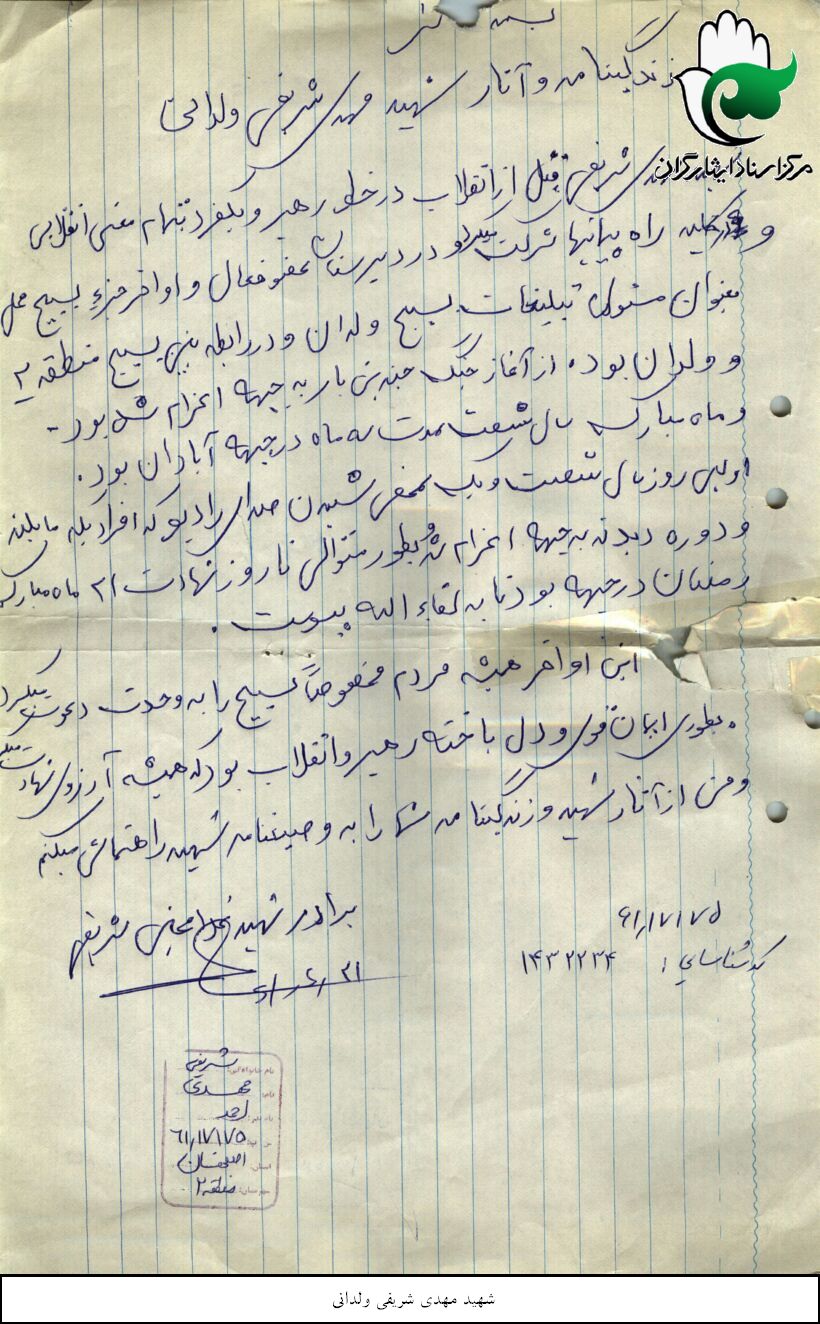 زندگینامه و آثار شهید مهدی شریفی ولدانی
مرکز اسناد ایثارگران
شریفی قبل از انقلاب در خط رهبر و یکفرد بتمام معنی انقلابی
و در کلیه راه پیمائیها شرکت میکرد و در دبیرستان عضو فعال و اواخر جزء بسیج محل
بعنوان مسئول تبلیغات بسیج ولدان و در رابطه بین بسیج منطقه ۲
و ولدان بود. از آغاز جنگ چندین بار به جبهه اعزام شده بود -
و ماه مبارک سال شصت مدت سه ماه در جبهه آبادان بود.
اولین روز سال شصت و یک بمحض شنیدن صدای رادیو که افرادیکه مایلند
و دوره دیده به جبهه اعزام شد و بطور متوالی تا روز شهادت ۲۱ ماه مبارک
رمضان در جبهه بود تا به لقاء الله پیوست.
این اواخر همیشه مردم مخصوصاً بسیج را به وحدت دعوت میکرد
بطوری ایمان قوی و دل باخته رهبر و انقلاب بود که همیشه آرزوی شهادت میکرد
و من از آثار شهید و زندگینامه شما را به وصیتنامه شهید راهنمائی میکنم
برادر شهید مجتبی شریفی
۶۱,۱۷۱۷۵
کد شناسایی: ۱۴۳۲۲۳۴
نام خانوادگی: شریفی
نام: مهدی
نام پدر: احمد
۶۱,۱۷۱۷۵
استان: اصفهان
منطقه ۲
شهید مهدی شریفی ولدانی